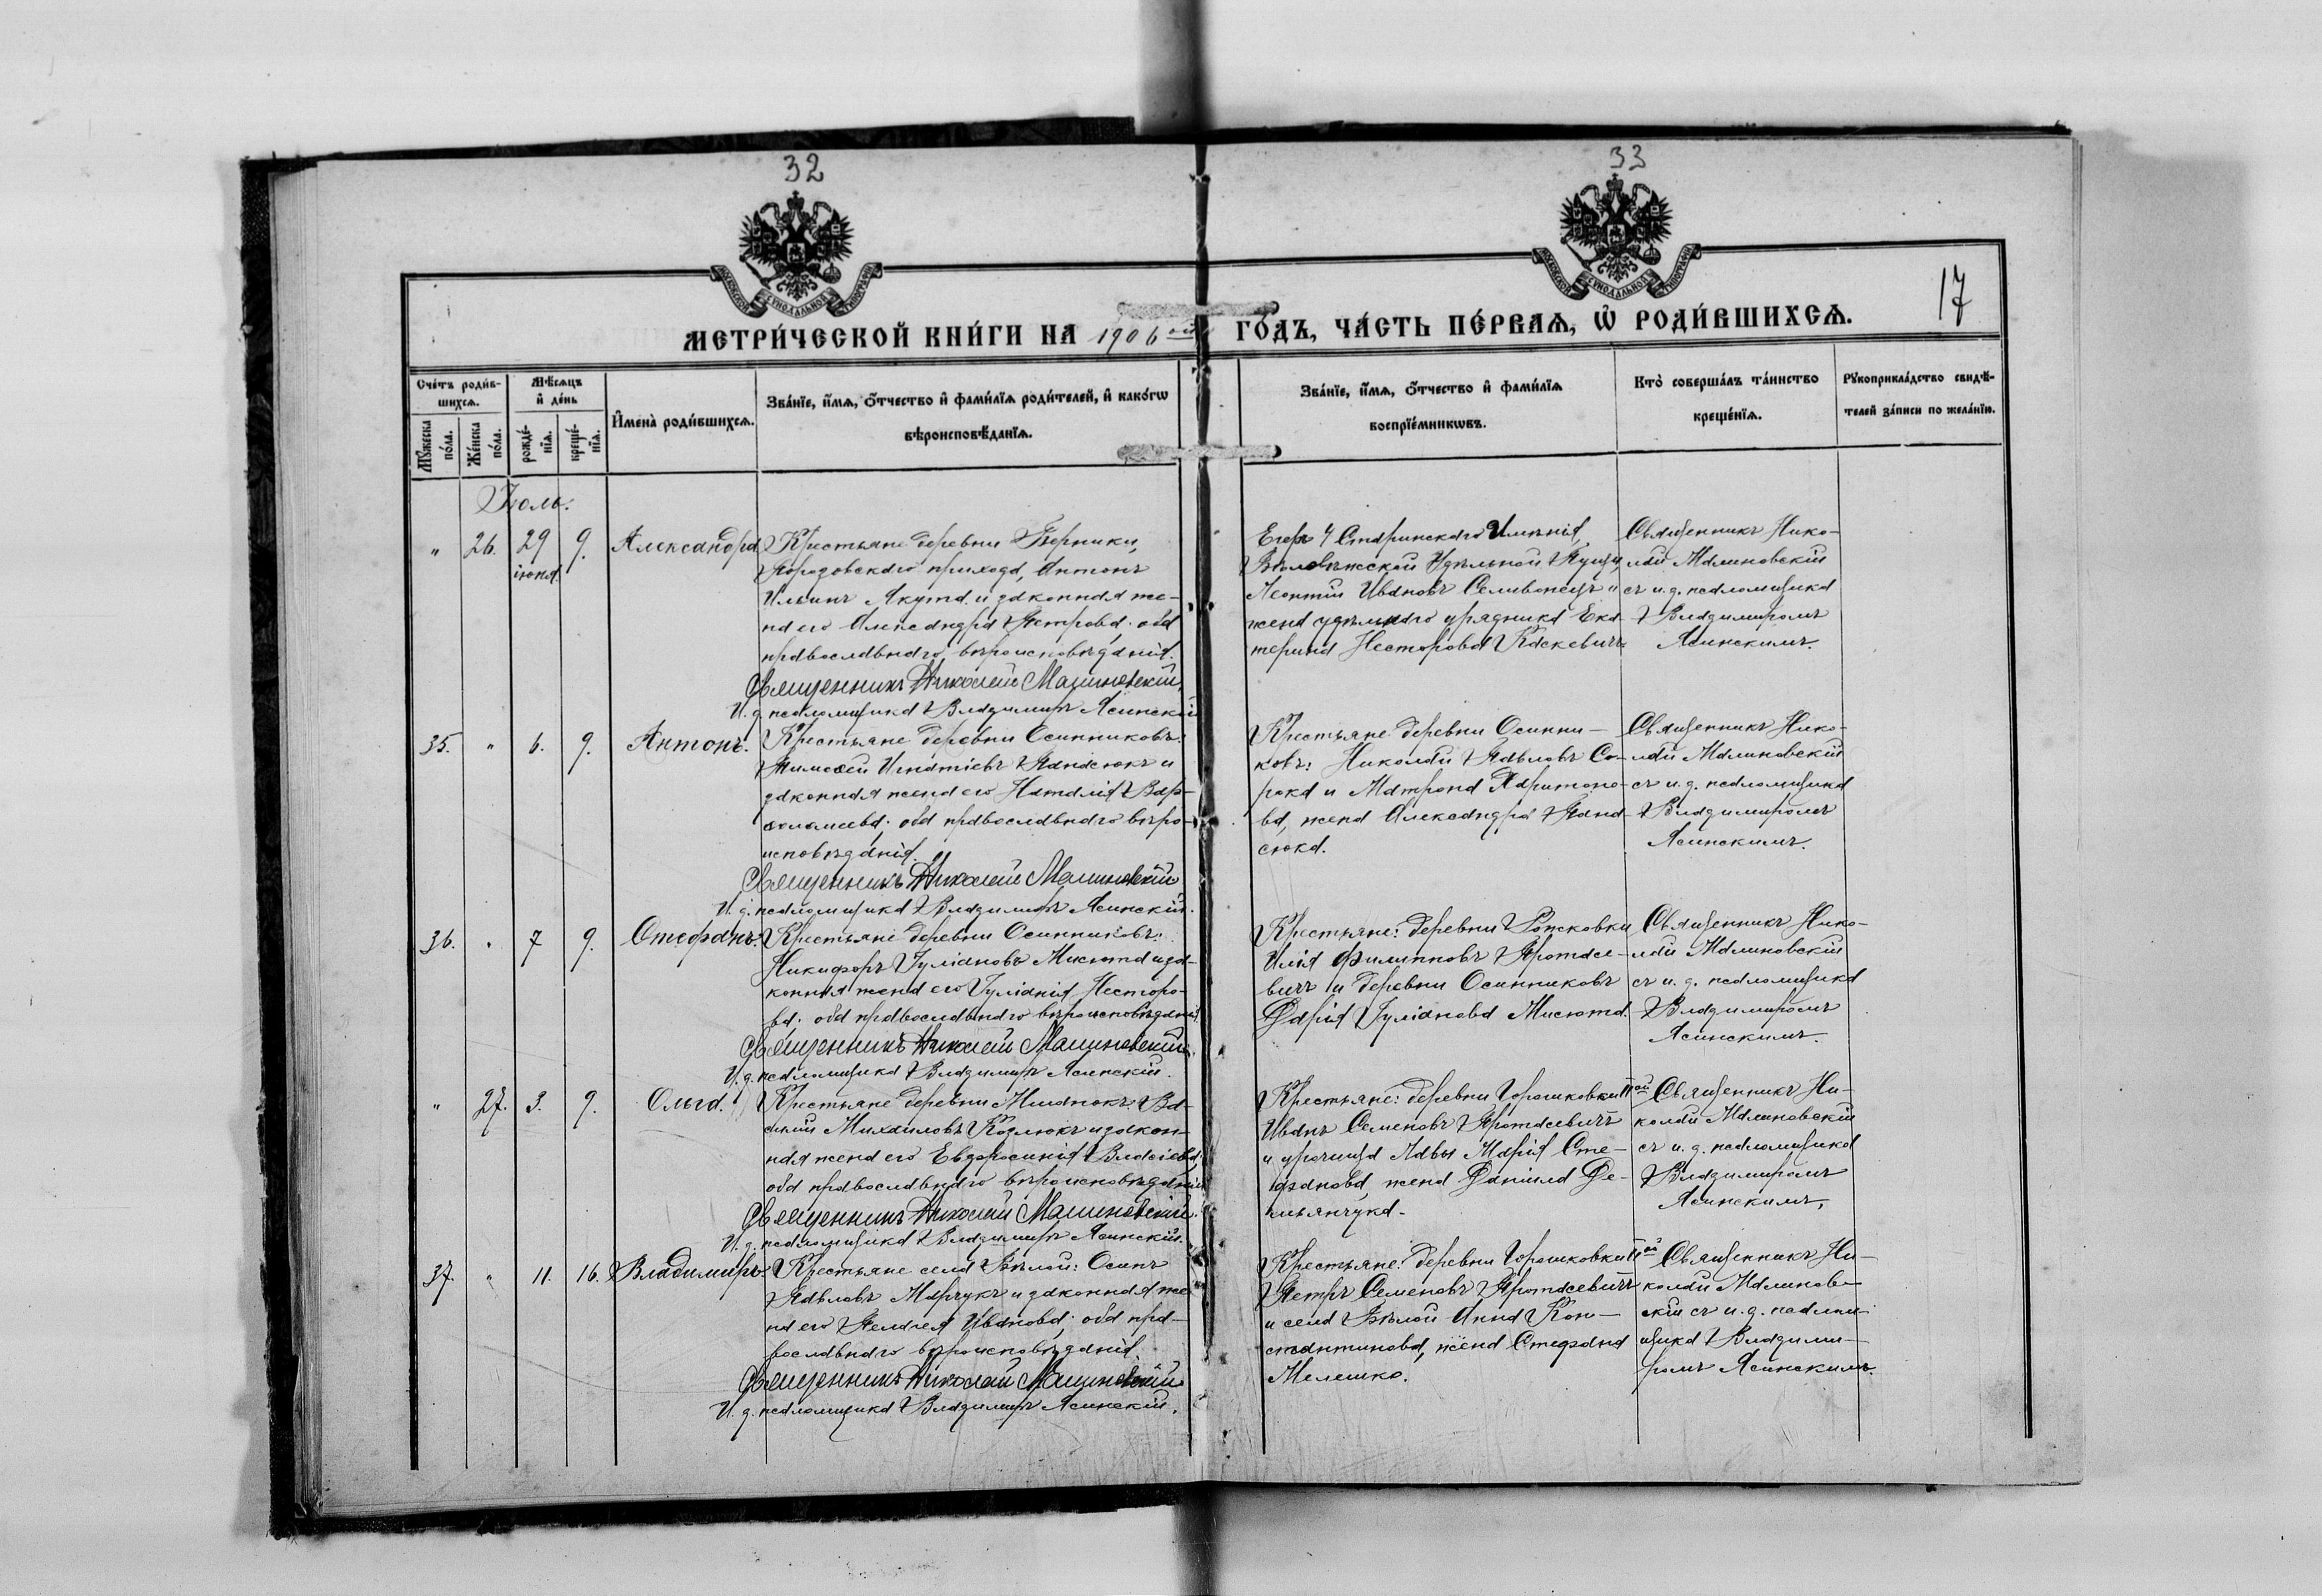 32
33
МОСКОВСКОЙ СѴНОДАЛЬНОЙ ТИПОГРАФІИ
МОСКОВСКОЙ СѴНОДАЛЬНОЙ ТИПОГРАФІИ
17
МЕТРИ́ЧЕСКОЙ КНИ́ГИ НА 1906 ой ГО́ДЪ, ЧА́СТЬ ПЕ́РВАѦ, Ѡ҆ РОДИ́ВШИХСѦ.
Сче́тъ роди́в-
шихсѧ.
Мѣ́сѧцъ
и҆ де́нь
Мꙋ́жеска по́ла.
Же́нска по́ла.
рожде́-
нїѧ.
креще́-
нїѧ.
И҆мена̀ роди́вшихсѧ.
Зва́нїе, и҆́мѧ, ѻ҆́тчество и҆ фами́лїѧ роди́телей, и҆ како́гѡ
вѣроисповѣ́данїѧ.
Зва́нїе, и҆́мѧ, ѻ҆́тчество и҆ фами́лїѧ
воспрїе́мникѡвъ.
Кто̀ соверша́лъ та́инство
креще́нїѧ.
Рꙋкоприкла́дство свидѣ́-
телей за́писи по жела́нїю.
Іюль.
" 26. 29 іюня 9. Александра
Крестьяне деревни Берники,
Городовскаго прихода, Антонъ
Ильинъ Якута и законная же-
на его Александра Петрова; оба
православнаго вѣроисповѣданія.
Священникъ Николай Малиновскій.
И. д. псаломщика Владимиръ Ясинскій
Егерь 4 Старинскаго Имѣнія,
Бѣловѣжской Удѣльной Пущи,
Леонтій Ивановъ Селивонецъ и
жена удѣльнаго урядника Ека-
терина Несторова Каскевичъ.
Священникъ Нико-
лай Малиновскій
съ и. д. псаломщика
Владимиромъ
Ясинскимъ.
35. " 6. 9. Антонъ.
Крестьяне деревни Осинниковъ:
Тимоѳей Игнатіевъ Панасюкъ и
законная жена его Наталія Вар-
ѳоломеева; оба православнаго вѣро-
исповѣданія.
Священникъ Николай Малиновскій
И. д. псаломщика Владимиръ Ясинскій.
Крестьяне деревни Осинни-
ковъ: Николай Павловъ Со-
рока и Матрона Харитоно-
ва, жена Александра Пана-
сюка.
Священникъ Нико-
лай Малиновскій
съ и. д. псаломщика
Владимиромъ
Ясинскимъ.
36. " 7 9. Стефанъ.
Крестьяне деревни Осинниковъ:
Никифоръ Іуліановъ Мисюта и за-
конная жена его Іуліанія Несторо-
ва; оба православнаго вѣроисповѣданія.
Священникъ Николай Малиновскій.
И. д. псаломщика Владимиръ Ясинскій.
Крестьяне: деревни Рожковки
Илія Филипповъ Протасе-
вичъ и деревни Осинниковъ
Дарія Іуліанова Мисюта.
Священникъ Нико-
лай Малиновскій
съ и. д. псаломщика
Владимиромъ
Ясинскимъ.
" 27. 3. 9. Ольга.
Крестьяне деревни Ва-
силій Михаиловъ Козлюкъ и закон-
ная жена его Евфросинія Власіева;
оба православнаго вѣроисповѣданія.
Священникъ Николай Малиновскій.
И. д. псаломщика Владимиръ Ясинскій.
Крестьяне: деревни Горошковки IIой
Иванъ Семеновъ Протасевичъ
и урочища Лавы Марія Сте-
фанова, жена Даніила Де-
мьянчука.
Священникъ Ни-
колай Малиновскій
съ и. д. псаломщика
Владимиромъ
Ясинскимъ,
37. " 11. 16. Владимиръ.
Крестьяне села Бѣлой: Осипъ
Павловъ Марчукъ и законная же-
на его Пелагея Иванова; оба пра-
вославнаго вѣроисповѣданія.
Священникъ Николай Малиновскій
И. д. псаломщика Владимиръ Ясинскій.
Крестьяне: деревни Горошковки IIой
Петръ Семеновъ Протасевичъ
и села Бѣлой Анна Кон-
стантинова, жена Стефана
Мелешко.
Священникъ Ни-
колай Малинов-
скій съ и. д. псалом-
щика Владими-
ромъ Ясинскимъ.